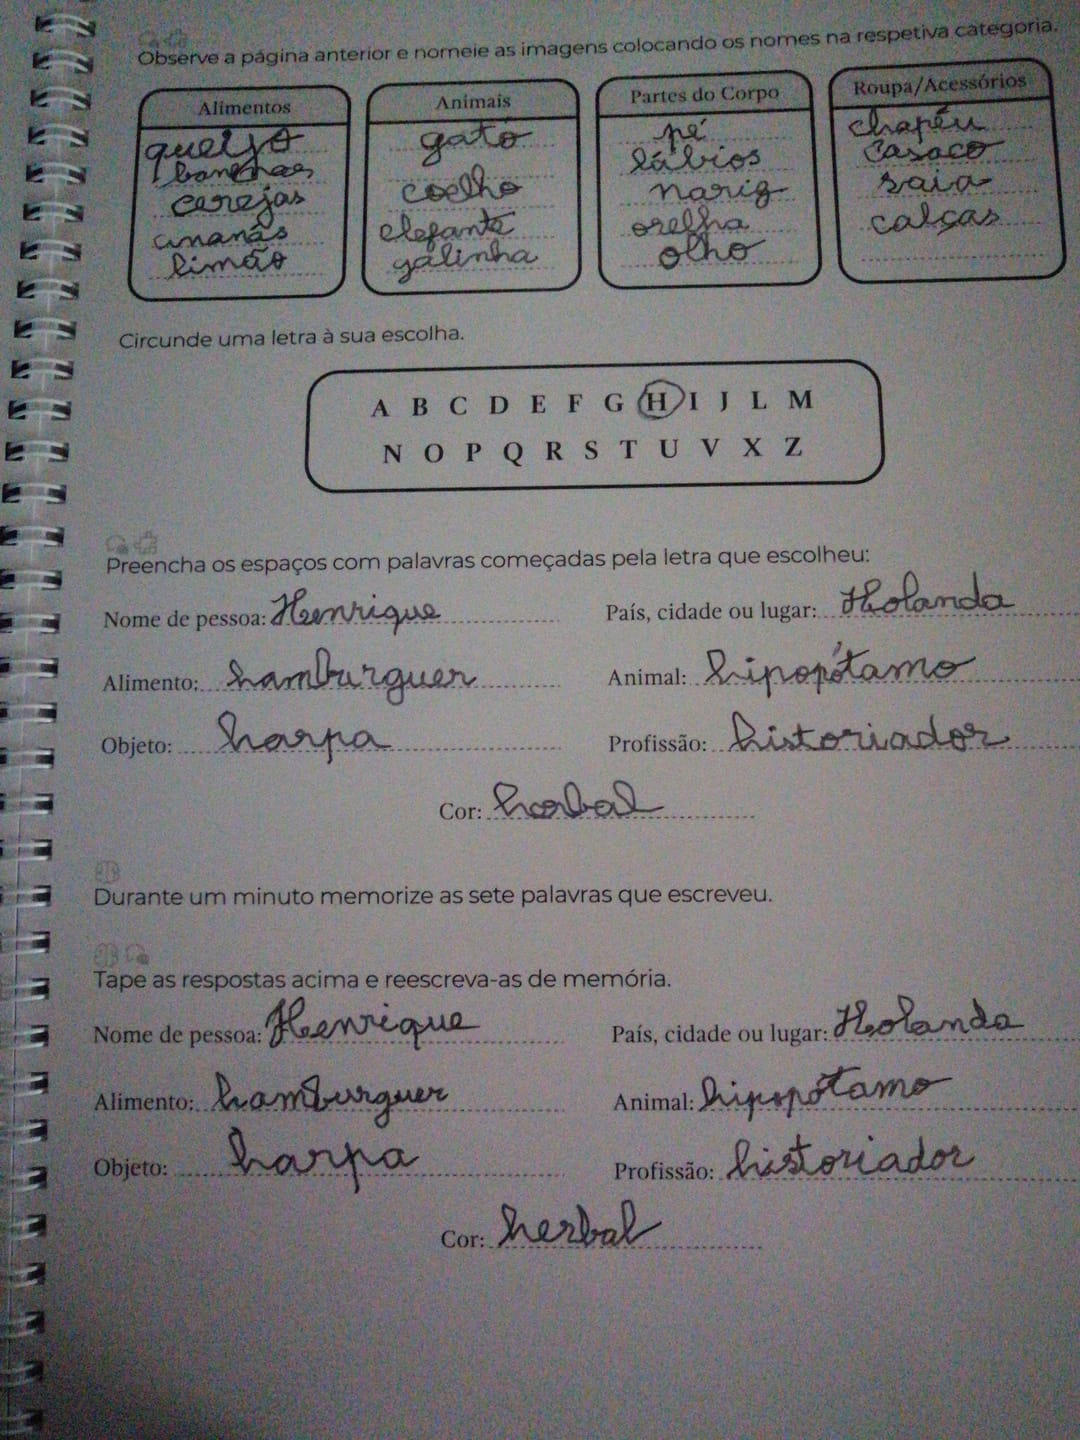 Observe a página anterior e nomeie as imagens colocando os nomes na respetiva categoria.
Alimentos Animais Partes do Corpo Roupa/Acessórios
queijo gato pé chapéu
bananas lábios casaco
cerejas coelho nariz saia
ananás elefante orelha calças
limão galinha olho
Circunde uma letra à sua escolha.
A B C D E F G H I J L M
N O P Q R S T U V X Z
Preencha os espaços com palavras começadas pela letra que escolheu:
Nome de pessoa: Henrique País, cidade ou lugar: Holanda
Alimento: hamburguer Animal: hipopótamo
Objeto: harpa Profissão: historiador
Cor:
Durante um minuto memorize as sete palavras que escreveu.
Tape as respostas acima e reescreva-as de memória.
Nome de pessoa: Henrique País, cidade ou lugar: Holanda
Alimento: hamburguer Animal: hipopótamo
Objeto: harpa Profissão: historiador
Cor: herbal